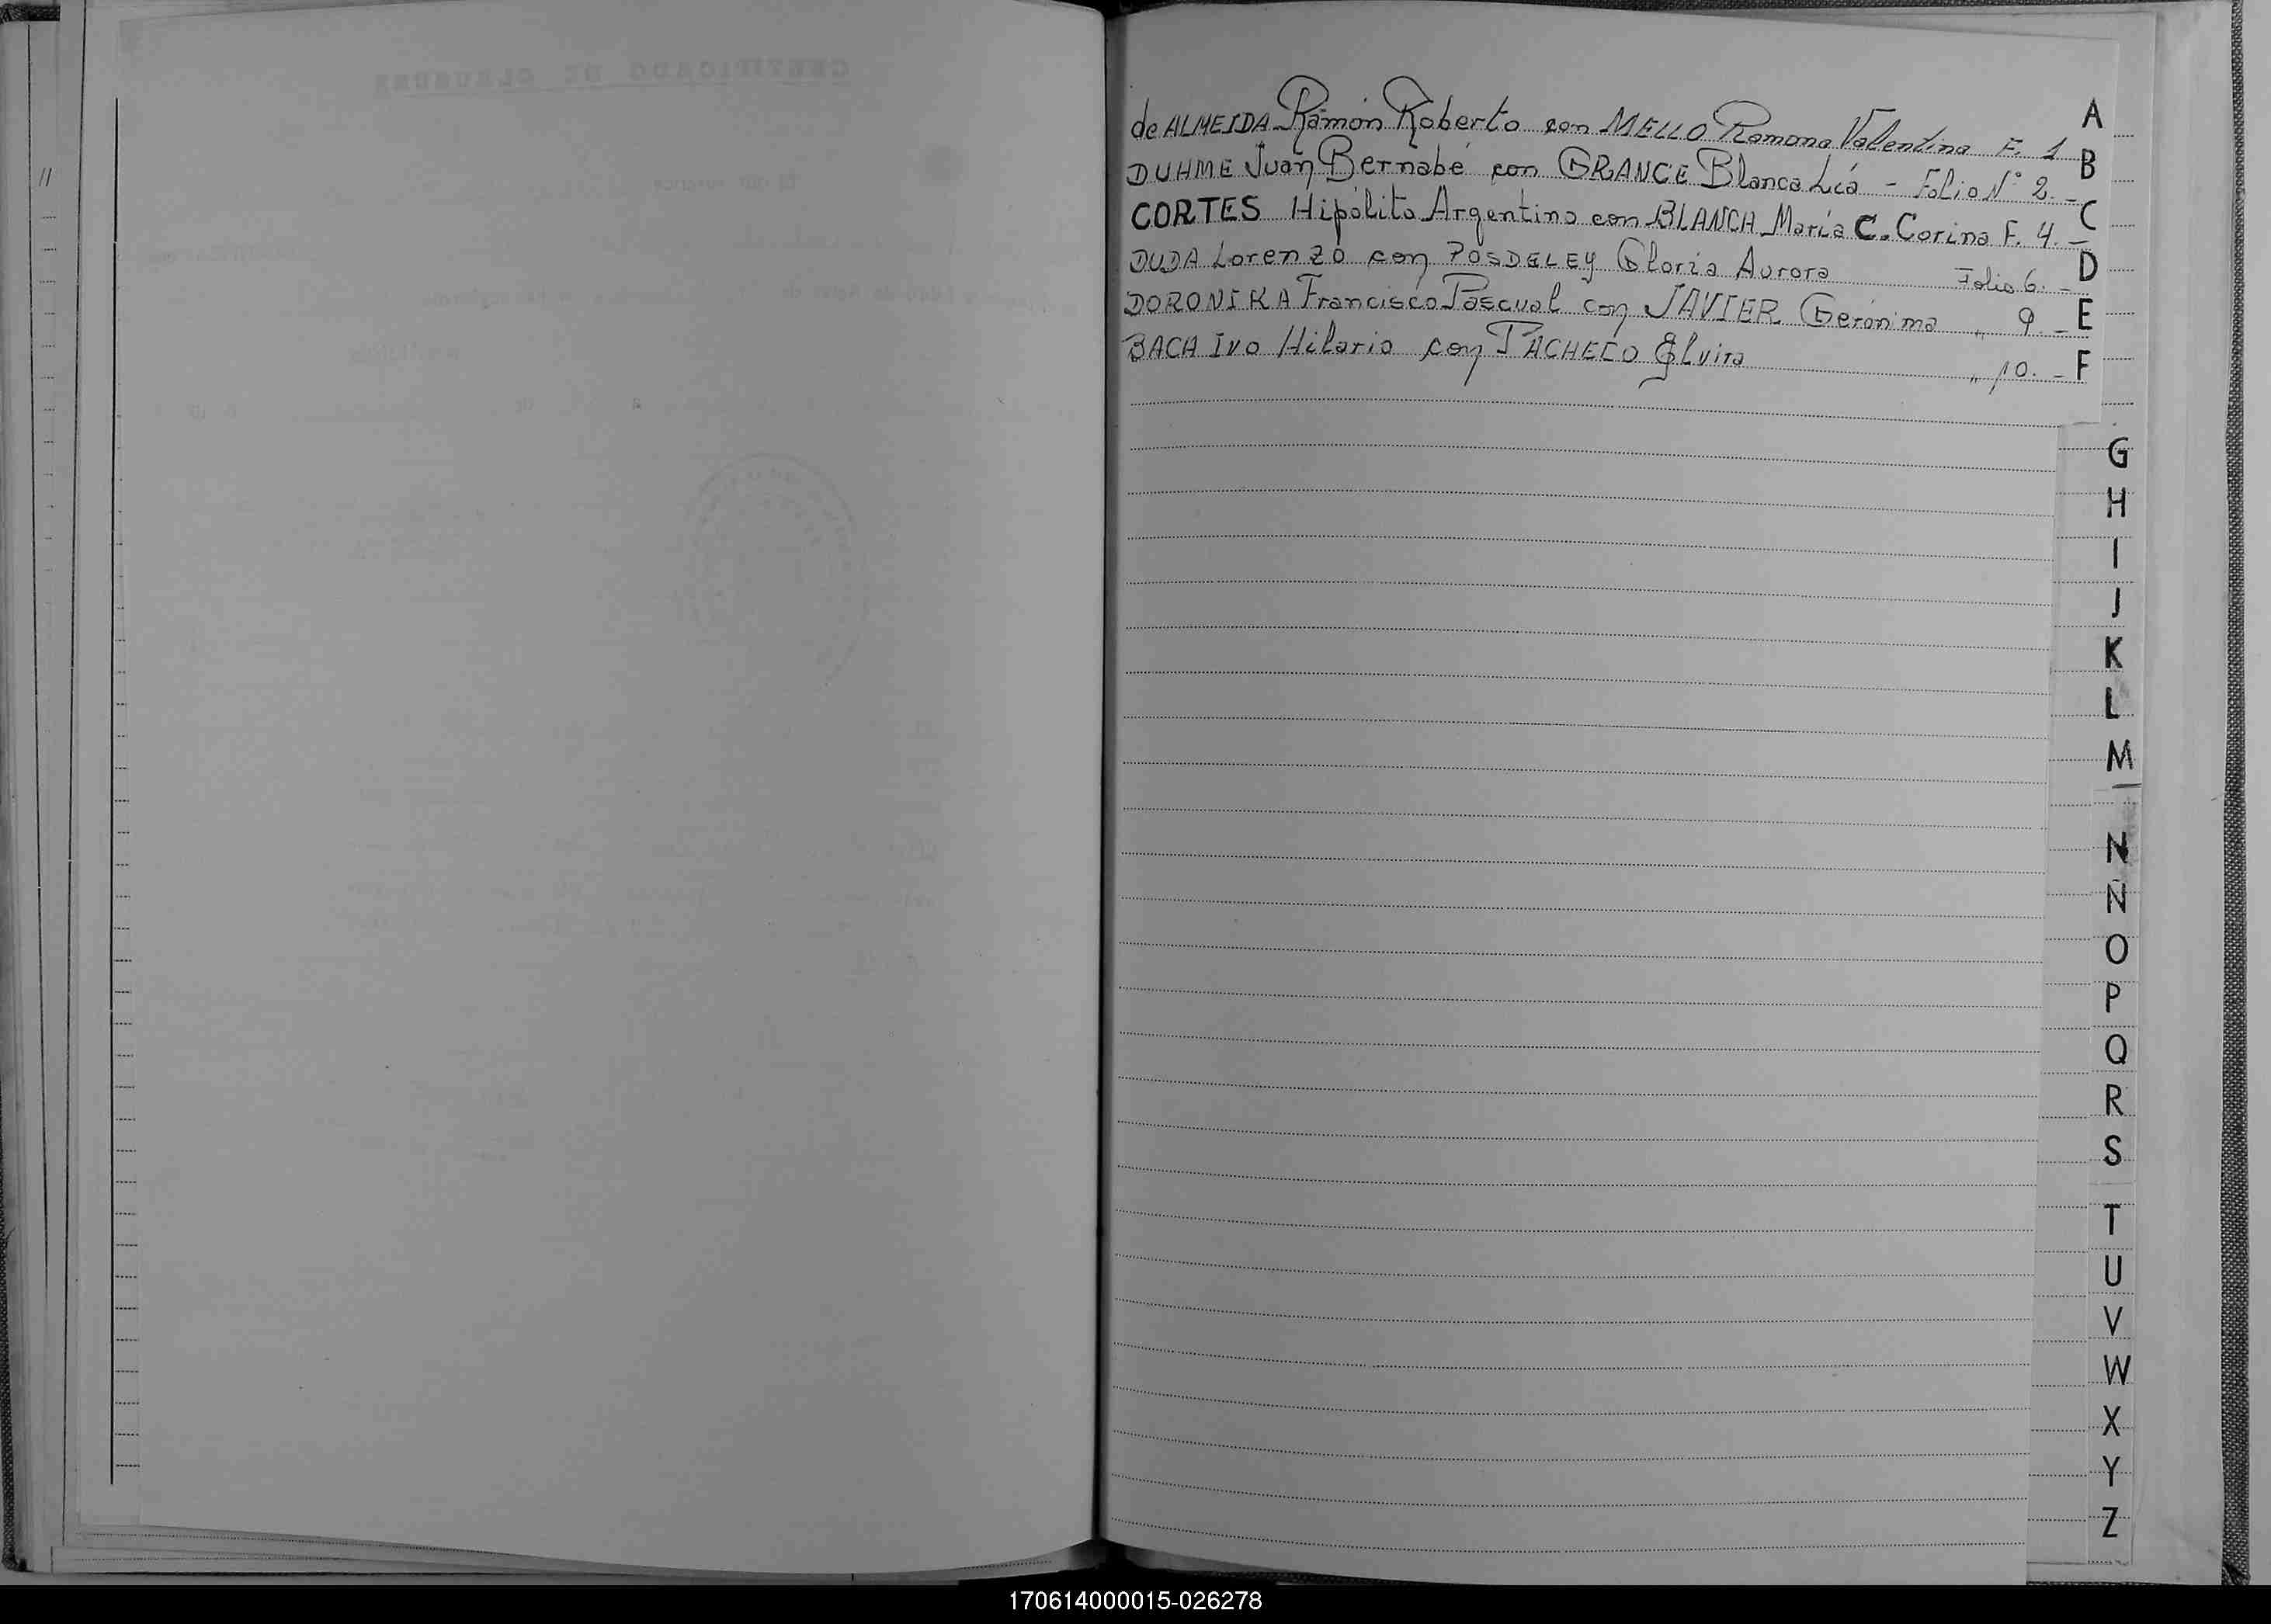 11
de ALMEIDA Ramón Roberto con MELLO Ramona Valentina F. 1
DUHME Juan Bernabé con GRANCE Blanca Lía - Folio N° 2. -
CORTES Hipólito Argentino con BLANCH María C. Corina F. 4. -
DUDA Lorenzo con POSDELEY Gloria Aurora Folio 6. -
DORONIKA Francisco Pascual con JAVIER Gerónima " 9. -
BACH Ivo Hilario con PACHECO Elvira " 10. -
A
B
C
D
E
F
G
H
I
J
K
L
M
N
Ñ
O
P
Q
R
S
T
U
V
W
X
Y
Z
170614000015-026278